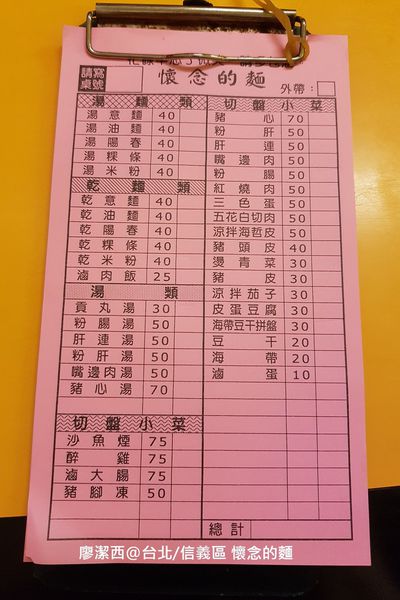 請寫
桌號
懷念的麵
外帶：
湯麵類
湯意麵 40
湯油麵 40
湯陽春 40
湯粿條 40
湯米粉 40
乾麵類
乾意麵 40
乾油麵 40
乾陽春 40
乾粿條 40
乾米粉 40
滷肉飯 25
湯類
貢丸湯 30
粉腸湯 50
肝連湯 50
粉肝湯 50
嘴邊肉湯 50
豬心湯 70
切盤小菜
沙魚煙 75
醉雞 75
滷大腸 75
豬腳凍 50
切盤小菜
豬心 70
粉肝 50
肝連 50
嘴邊肉 50
粉腸 50
紅燒肉 50
三色蛋 50
五花白切肉 50
涼拌海哲皮 50
豬頭皮 40
燙青菜 30
豬皮 30
涼拌茄子 30
皮蛋豆腐 30
海帶豆干拼盤 30
豆干 20
海帶 20
滷蛋 10
總計
廖潔西@台北/信義區 懷念的麵